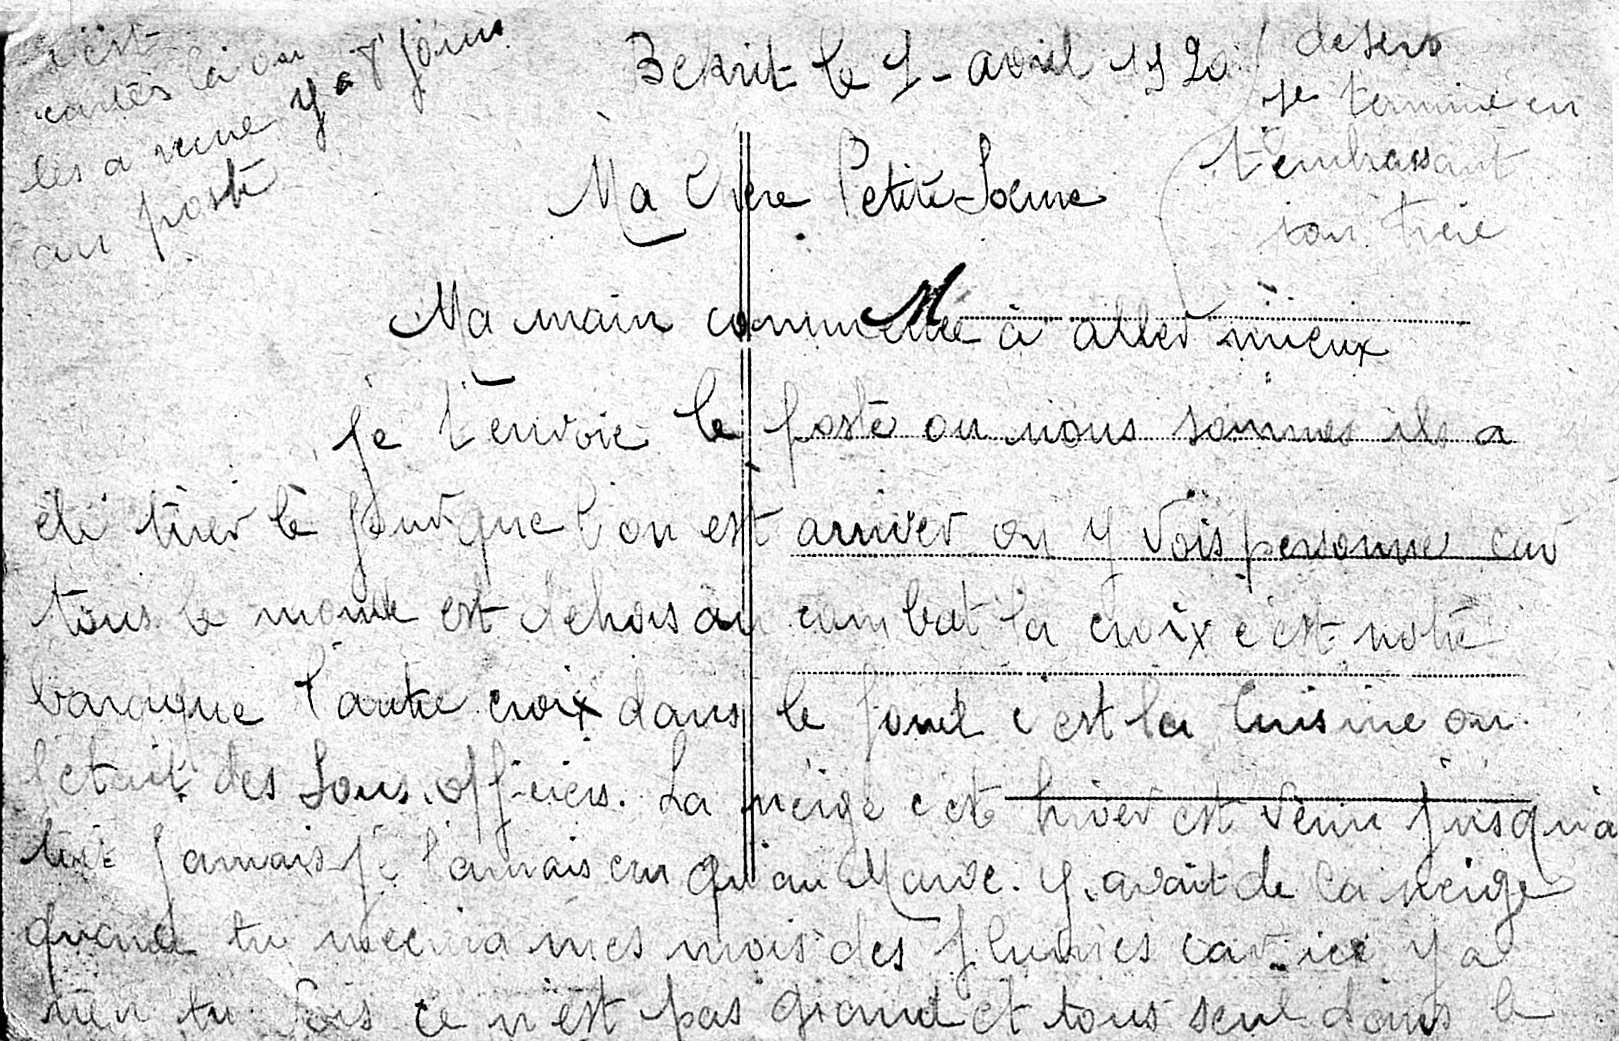 Bekrit le 1 - avril 1920
Ma Chere Petite Soeure
Ma main commence à aller mieux
je t'envoie le poste ou nous sommes ils a
été tirer le jour que l'on est arriver on y vois personne car
tous le monde est dehors au combat la croix c'est notre
baraque l'autre croix dans le fond c'est la cuisine ou
letait des Sous officiers. La neige cet hiver est venu jusqu'a
toit jamais je l'amais cru qu'au Maroc. y avait de la neige
quand tu mecrira mes mois des plumes car ici y a
rien tu vois ce n'est pas grand et tous seul dans le
desers
je termine en
t'embrassant
ton frere
c'est
cartes la on
les a recue y a 8 jours
au poste